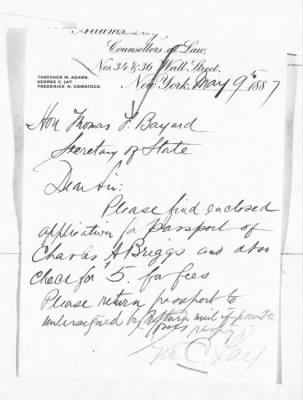 Counsellors at Law,
Nos. 34 & 36 Wall Street,
THATCHER M. ADAMS.
GEORGE C. LAY.
FREDERICK H. COMSTOCK.
New York. May 9 1887
Hon Thomas F. Bayard
Secretary of State
Dear Sir:
Please find enclosed
application for Passport of
Charles A Briggs and also
check for $5. for fees
Please return passport to
undersigned by return mail if possible
Yours respy
Geo. C. Lay